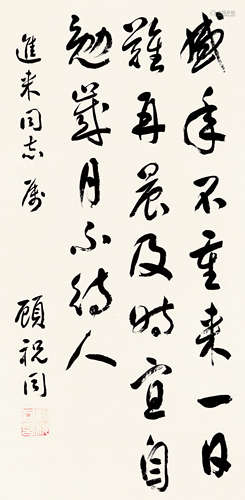 盛年不重来一日
難再晨及時宜自
勉歲月不待人
進来同志属 顧祝同